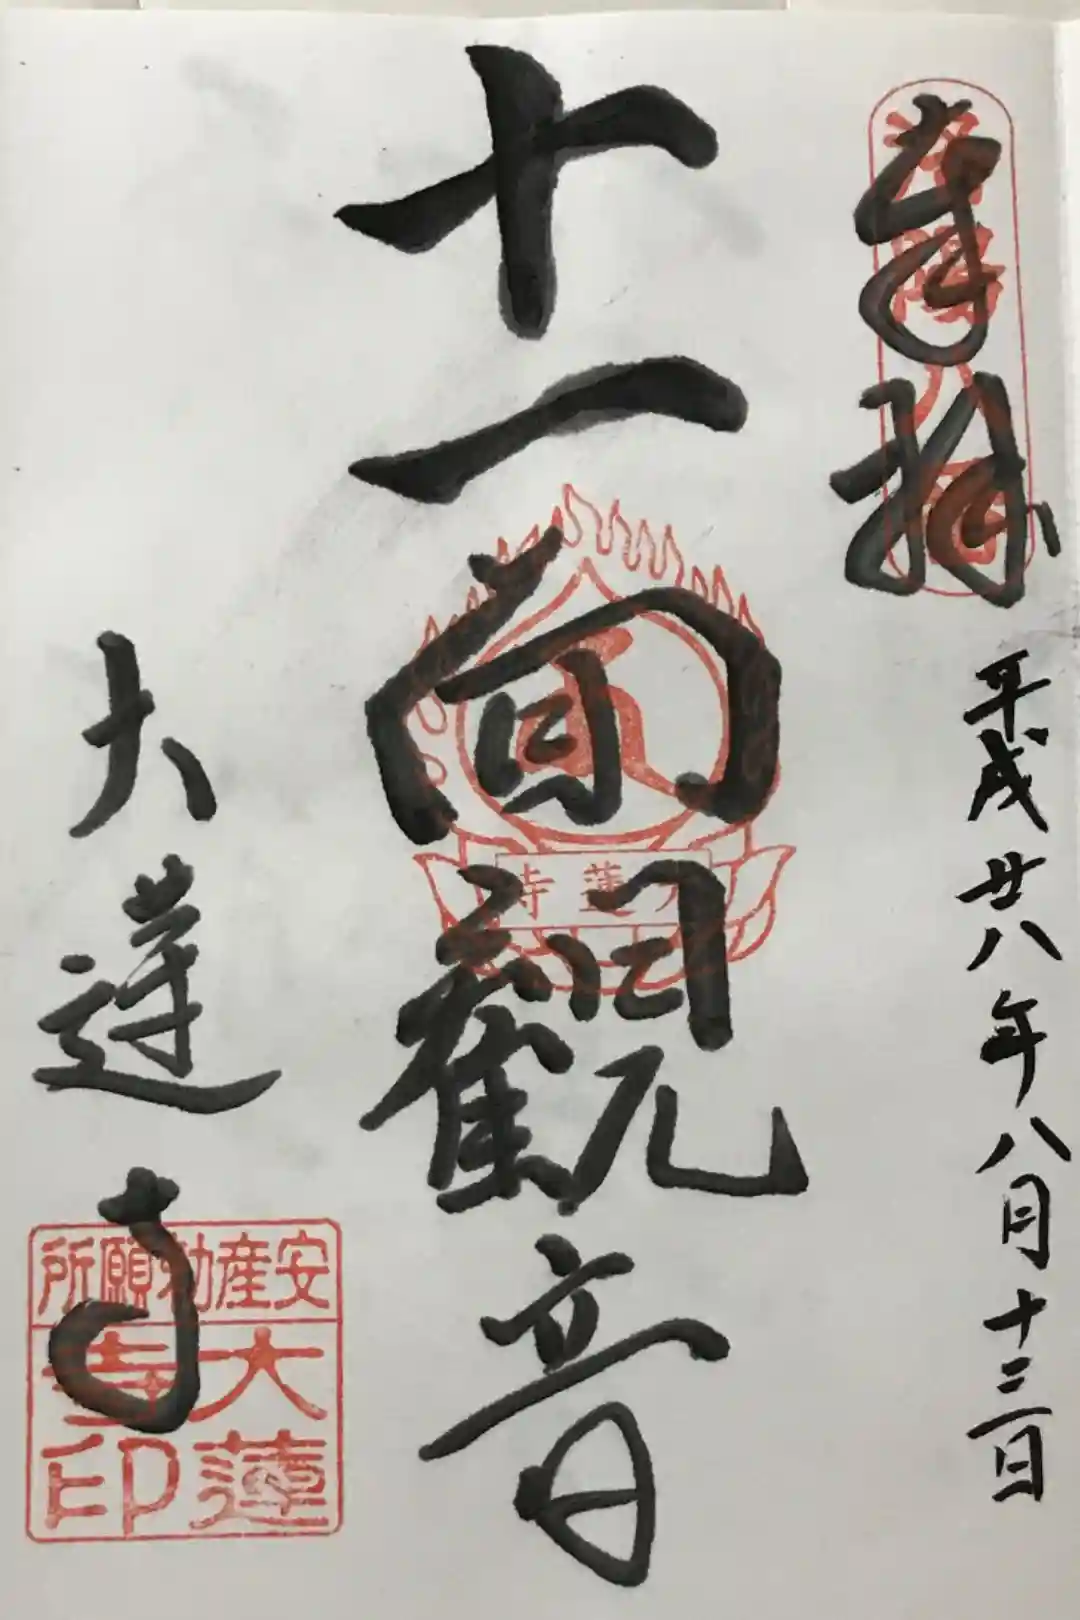 奉拝
平成廿八年八月十三日
十一面観音
大蓮寺
洛陽
八番
大蓮寺
安産勅願所
大蓮寺印